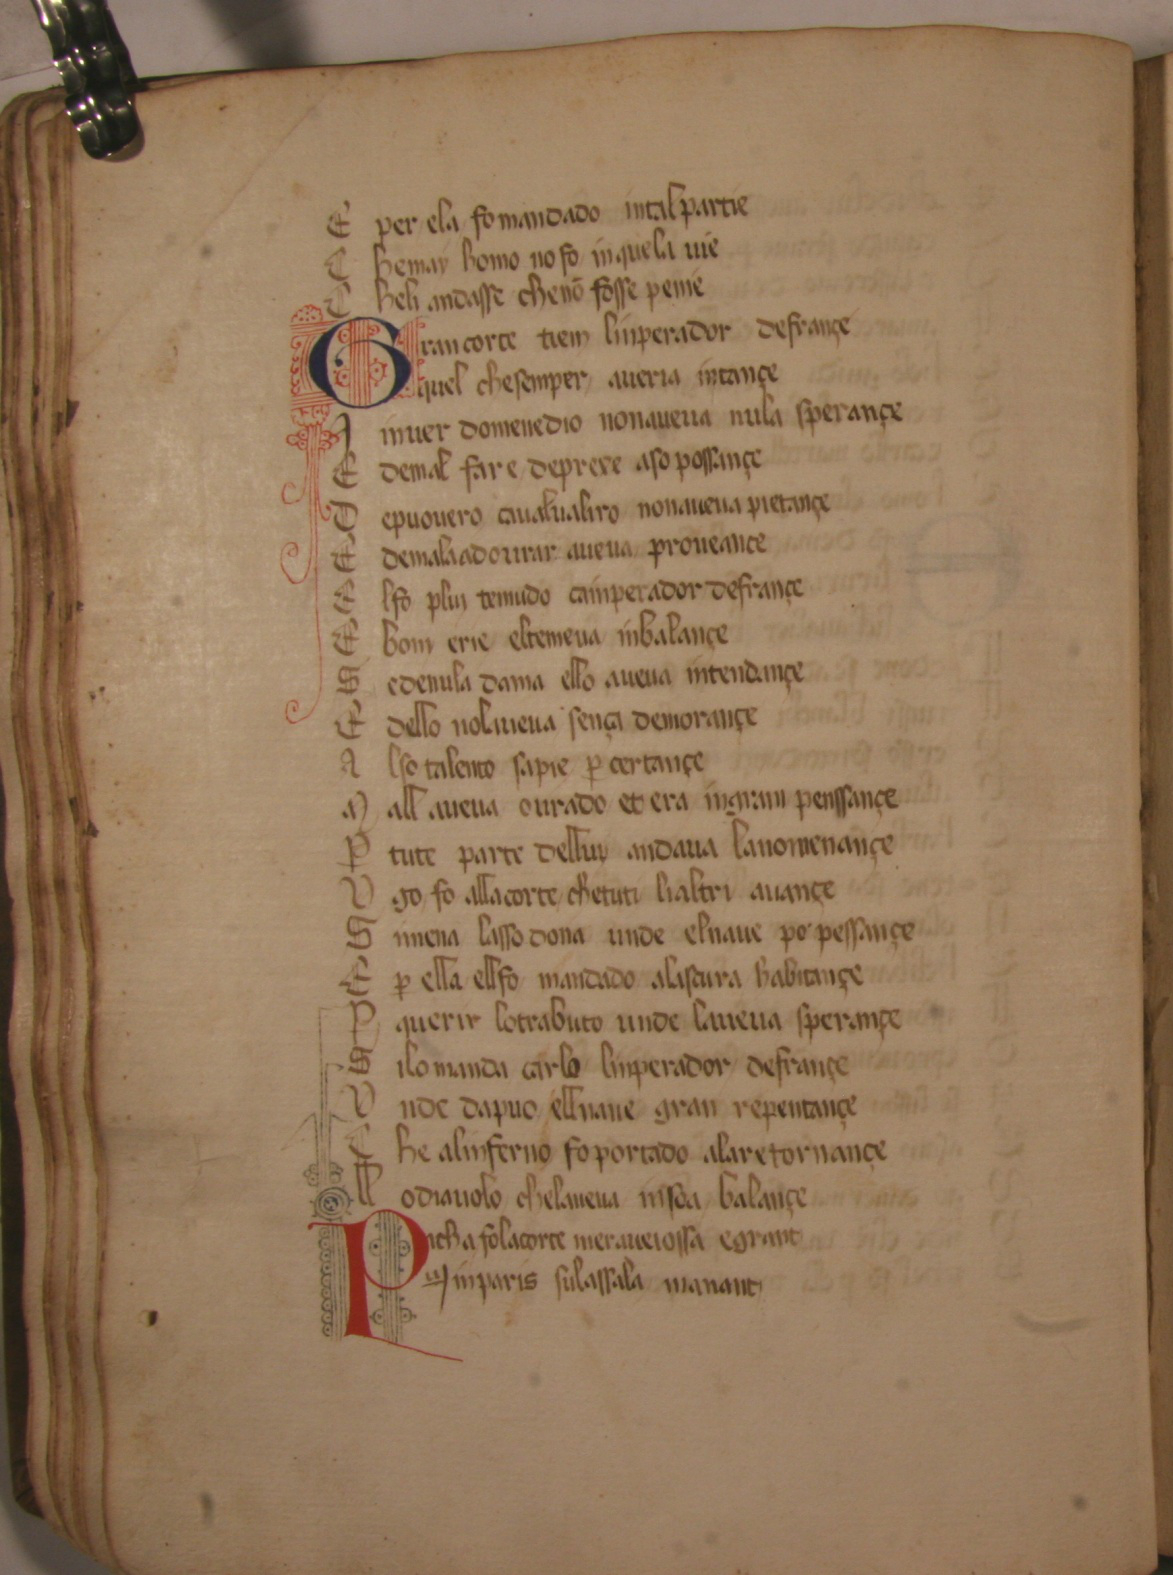 E per ela fo mandado intal partie
C hemay homo no fo inquela vie
C heli andasse chenō fosse penie
Gran corte tiem linperador defrançe
quel chesemper averia intançe
A inver domenedio nonaveva nula sperançe
E demal fare deprexe aso possançe
D epuovero cavalvaliro nonaveva pietançe
E demala adovrar aveva proveançe
E lfo plui temudo cainperador defrançe
E bom erie eltemeva inbalançe
S edenula dama ello aveva intendançe
E dello nolaveva sença demorançe
A lso talento sapie p̱ certançe
M all aveva ovrado et era ingram penssançe
P tute parte delluy andava lanomenançe
U go fo allacorte chetuti lialtri avançe
S imena lasso dona unde elnave po pessançe
E p̱ ella ellfo mandado alascura habitançe
P querir lotrabuto unde laveva sperançe
S ilo manda carlo linperador defrançe
U nde dapuo ellnave gran repentançe
C he alinferno fo portado alaretornançe
Ll odiavolo chelaveva insoa balançe
Richa fo lacorte meraveiossa egrant
inparis sulassala manant